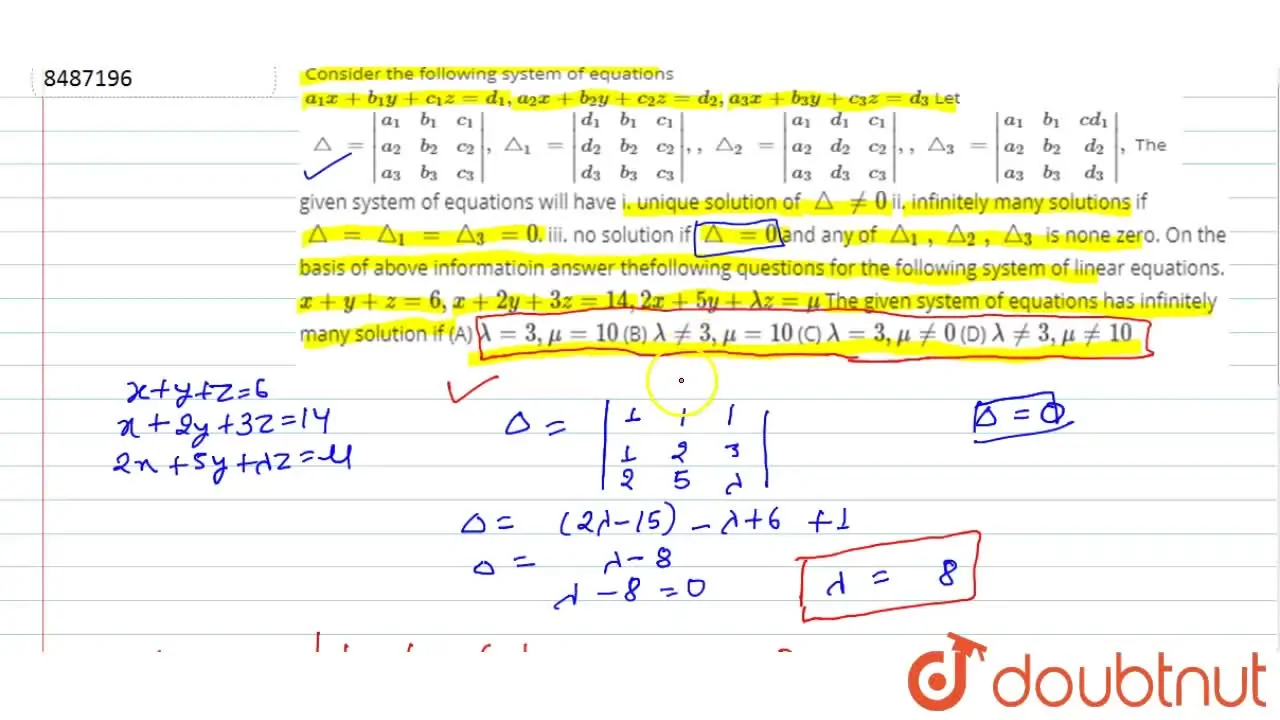 8487196
Consider the following system of equations
a₁x + b₁y + c₁z = d₁, a₂x + b₂y + c₂z = d₂, a₃x + b₃y + c₃z = d₃ Let
△ = |a₁ b₁ c₁; a₂ b₂ c₂; a₃ b₃ c₃|, △₁ = |d₁ b₁ c₁; d₂ b₂ c₂; d₃ b₃ c₃|, , △₂ = |a₁ d₁ c₁; a₂ d₂ c₂; a₃ d₃ c₃|, , △₃ = |a₁ b₁ cd₁; a₂ b₂ d₂; a₃ b₃ d₃|, The
given system of equations will have i. unique solution of △ ≠ 0 ii. infinitely many solutions if
△ = △₁ = △₃ = 0. iii. no solution if △ = 0 and any of △₁ , △₂ , △₃ is none zero. On the
basis of above informatioin answer thefollowing questions for the following system of linear equations.
x + y + z = 6, x + 2y + 3z = 14, 2x + 5y + λz = μ The given system of equations has infinitely
many solution if (A) λ = 3, μ = 10 (B) λ ≠ 3, μ = 10 (C) λ = 3, μ ≠ 0 (D) λ ≠ 3, μ ≠ 10
x+y+z=6
x+2y+3z=14
2x+5y+λz=μ
Δ = |1 1 1; 1 2 3; 2 5 λ|
Δ = 0
Δ = (2λ-15) -λ+6 +1
Δ = λ-8
λ-8=0
λ = 8
doubtnut